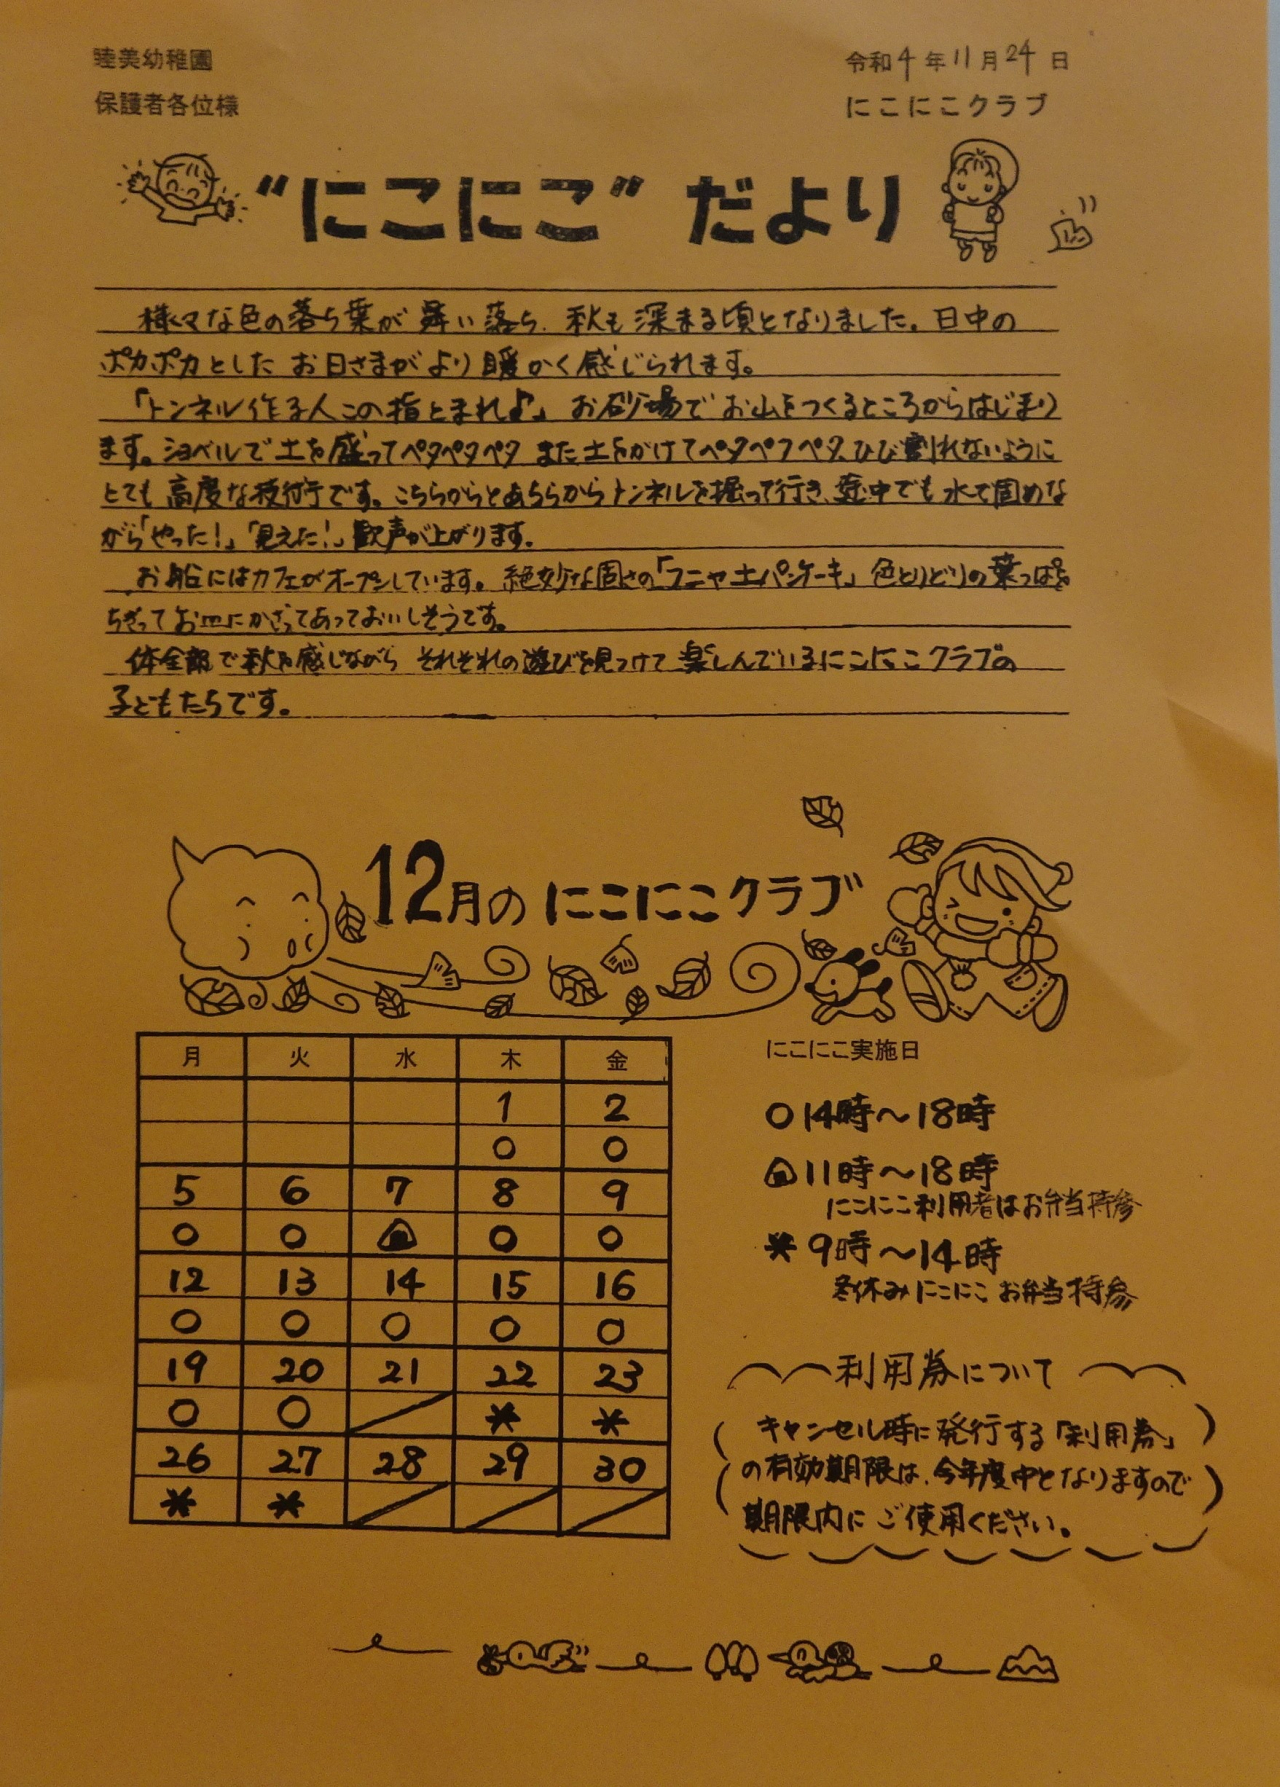 睦美幼稚園
令和4年11月24日
保護者各位様
にこにこクラブ
“にこにこ”だより
様々な色の落ち葉が舞い落ち、秋も深まる頃となりました。日中の
ポカポカとしたお日さまがより暖かく感じられます。
「トンネル作る人この指とまれ♪」お砂場でお山をつくるところからはじまり
ます。ショベルで土を盛ってペタペタペタ また土をかけてペタペタペタ、ひび割れないように
とても高度な技術です。こちらからとあちらからトンネルを掘って行き、途中でも水で固めな
がら「やった!」「見えた!」歓声が上がります。
お船にはカフェがオープンしています。絶妙な固さの「フニャ土パンケーキ」色とりどりの葉っぱを
ちぎってお皿にかざってあっておいしそうです。
体全部で秋を感じながら それぞれの遊びを見つけて楽しんでいるにこにこクラブの
子どもたちです。
12月のにこにこクラブ
月 火 水 木 金
1 2
○ ○
5 6 7 8 9
○ ○ ○ ○
12 13 14 15 16
○ ○ ○ ○ ○
19 20 21 22 23
○ ○ ／ * *
26 27 28 29 30
* * ／ ／ ／
にこにこ実施日
○14時〜18時
11時〜18時
にこにこ利用者はお弁当持参
* 9時〜14時
冬休みにこにこ お弁当持参
利用券について
キャンセル時に発行する「利用券」
の有効期限は、今年度中となりますので
期限内にご使用ください。